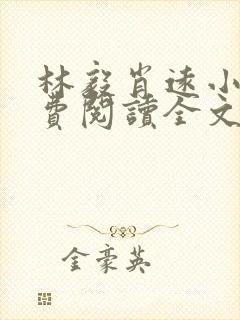 林毅肖遠小
費閱讀全文
金豪英